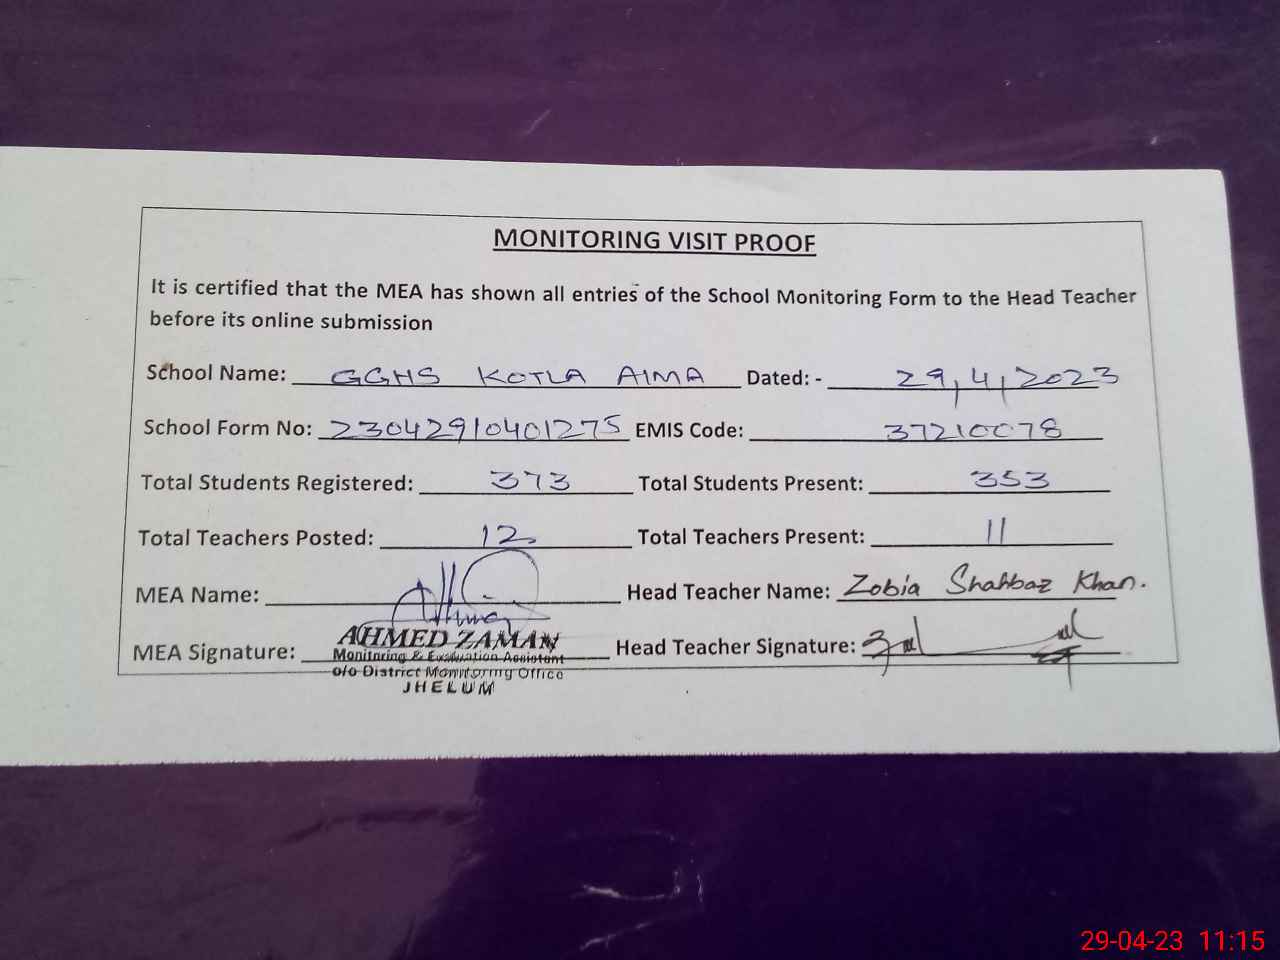 MONITORING VISIT PROOF
It is certified that the MEA has shown all entries of the School Monitoring Form to the Head Teacher
before its online submission
School Name: GGHS KOTLA AIMA Dated: - 29,4,2023
School Form No: 23042910401275 EMIS Code: 37210078
Total Students Registered: 373 Total Students Present: 353
Total Teachers Posted: 12 Total Teachers Present: 11
MEA Name: Head Teacher Name: Zobia Shahbaz Khan.
MEA Signature: Head Teacher Signature:
AHMED ZAMAN
Monitoring & Evaluation Assistant
o/o District Monitoring Office
JHELUM
29-04-23 11:15